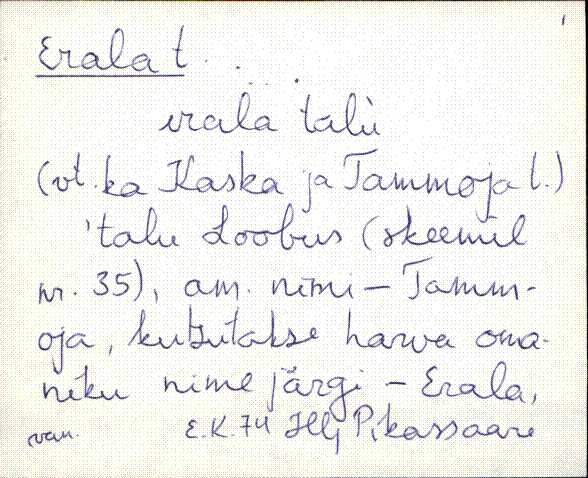 Erala t.
erala talù
(vt. ka Kaska ja Tammoja t.)
'talu Loobus (skeemil
nr. 35), am. nimi – Tamm-
oja, kutsutakse harva oma-
niku nime järgi – Erala,
van. E.K. 74 Illj Pikassaare